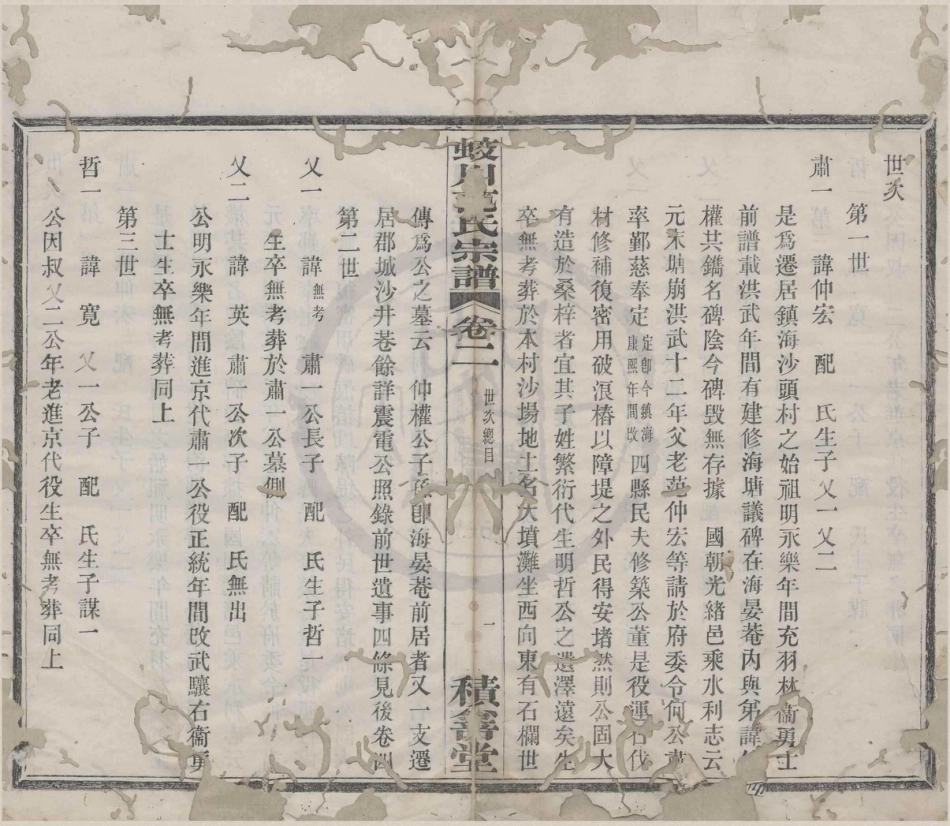 世次
第一世
肅一　諱仲宏　配　氏生子又一又二
是爲遷居鎮海沙頭村之始祖明永樂年間充羽林衞勇士
前譜載洪武年間有建修海塘議碑在海晏菴內與弟諱仲
權共鐫名碑陰今碑毀無存據　國朝光緒邑乘水利志云
元末塘崩洪武十二年父老范仲宏等請於府委令何公肅
率鄞慈奉定定卽今鎮海康熙年間改四縣民夫修築公董是役運石伐
材修補復密用破浪樁以障堤之外民得安堵然則公固大
有造於桑梓者宜其子姓繁衍代生明哲公之遺澤遠矣生
卒無考葬於本村沙場地土名大墳灘坐西向東有石欄世
蛟川范氏宗譜　卷二　世次總目　一　積善堂
傳爲公之墓云　仲權公子孫卽海晏菴前居者又一支遷
居郡城沙井巷餘詳震電公照錄前世遺事四條見後卷四
第二世
又一　諱無考　肅一公長子　配　氏生子哲一
生卒無考葬於肅一公墓側
又二　諱英　肅一公次子　配　氏無出
公明永樂年間進京代肅一公役正統年間改武驤右衞勇
士生卒無考葬同上
第三世
哲一　諱寬　又一公子　配　氏生子謀一
公因叔又二公年老進京代役生卒無考葬同上